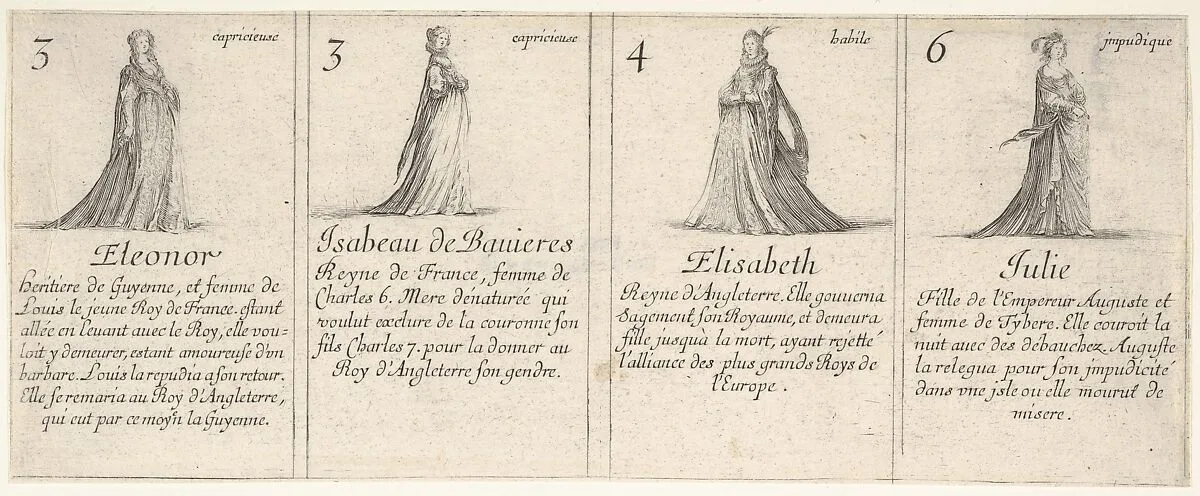 3 capricieuse
Eleonor
heritiere de Guyenne, et femme de
Louis le jeune Roy de France. estant
allée en leuant auec le Roy, elle vou=
loit y demeurer, estant amoureuse d'vn
barbare. Louis la repudia a son retour.
Elle se remaria au Roy d'Angleterre,
qui eut par ce moyẽn la Guyenne.
3 capricieuse
Isabeau de Bauieres
Reyne de France, femme de
Charles 6. Mere dénaturée qui
voulut exclure de la couronne son
fils Charles 7. pour la donner au
Roy d'Angleterre son gendre.
4 habile
Elisabeth
Reyne d'Angleterre. Elle gouuerna
sagement son Royaume, et demeura
fille jusqu'à la mort, ayant rejetté
l'alliance des plus grands Roys de
l'Europe.
6 jmpudique
Julie
Fille de l'Empereur Auguste et
femme de Tybere. Elle couroit la
nuit auec des débauchez. Auguste
la relegua pour son jmpudicité
dans vne jsle ou elle mourut de
misere.